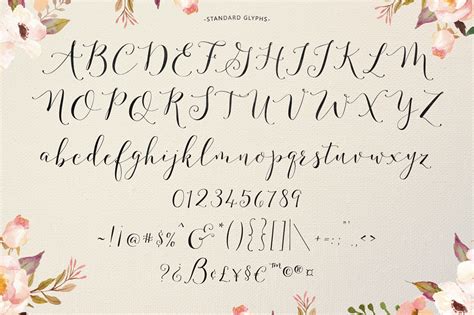 -STANDARD GLYPHS-
ABCDEFGHIJKLM
NOPQRSTUVWXYZ
abcdefghijklmnopqrstuvwxyz
0123456789
~!¡@#$%^&*(){}[]|\
¿₿£¥$™©®¤